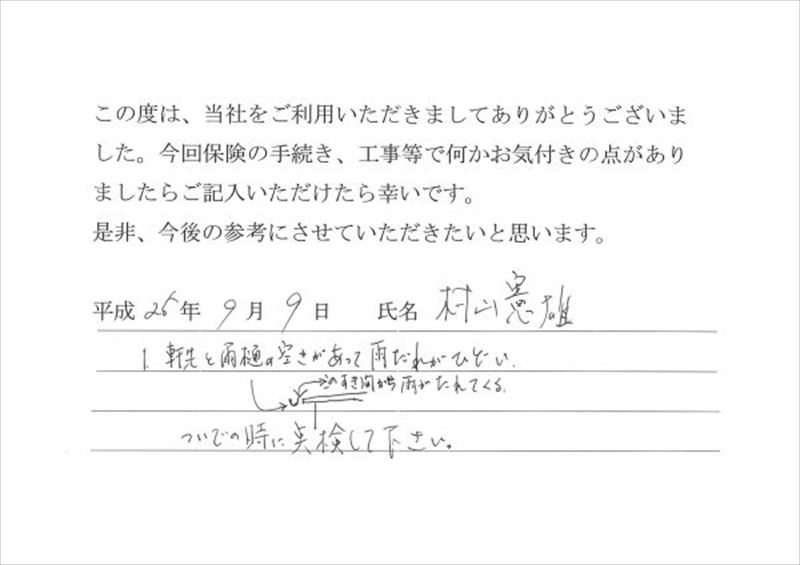 この度は、当社をご利用いただきましてありがとうございま
した。今回保険の手続き、工事等で何かお気付きの点があり
ましたらご記入いただけたら幸いです。
是非、今後の参考にさせていただきたいと思います。
平成 25年 9月 9日 氏名 村山憲雄
1. 軒先と雨樋の空きがあって雨だれがひどい.
このすき間から雨がたれてくる.
ついでの時に点検して下さい。